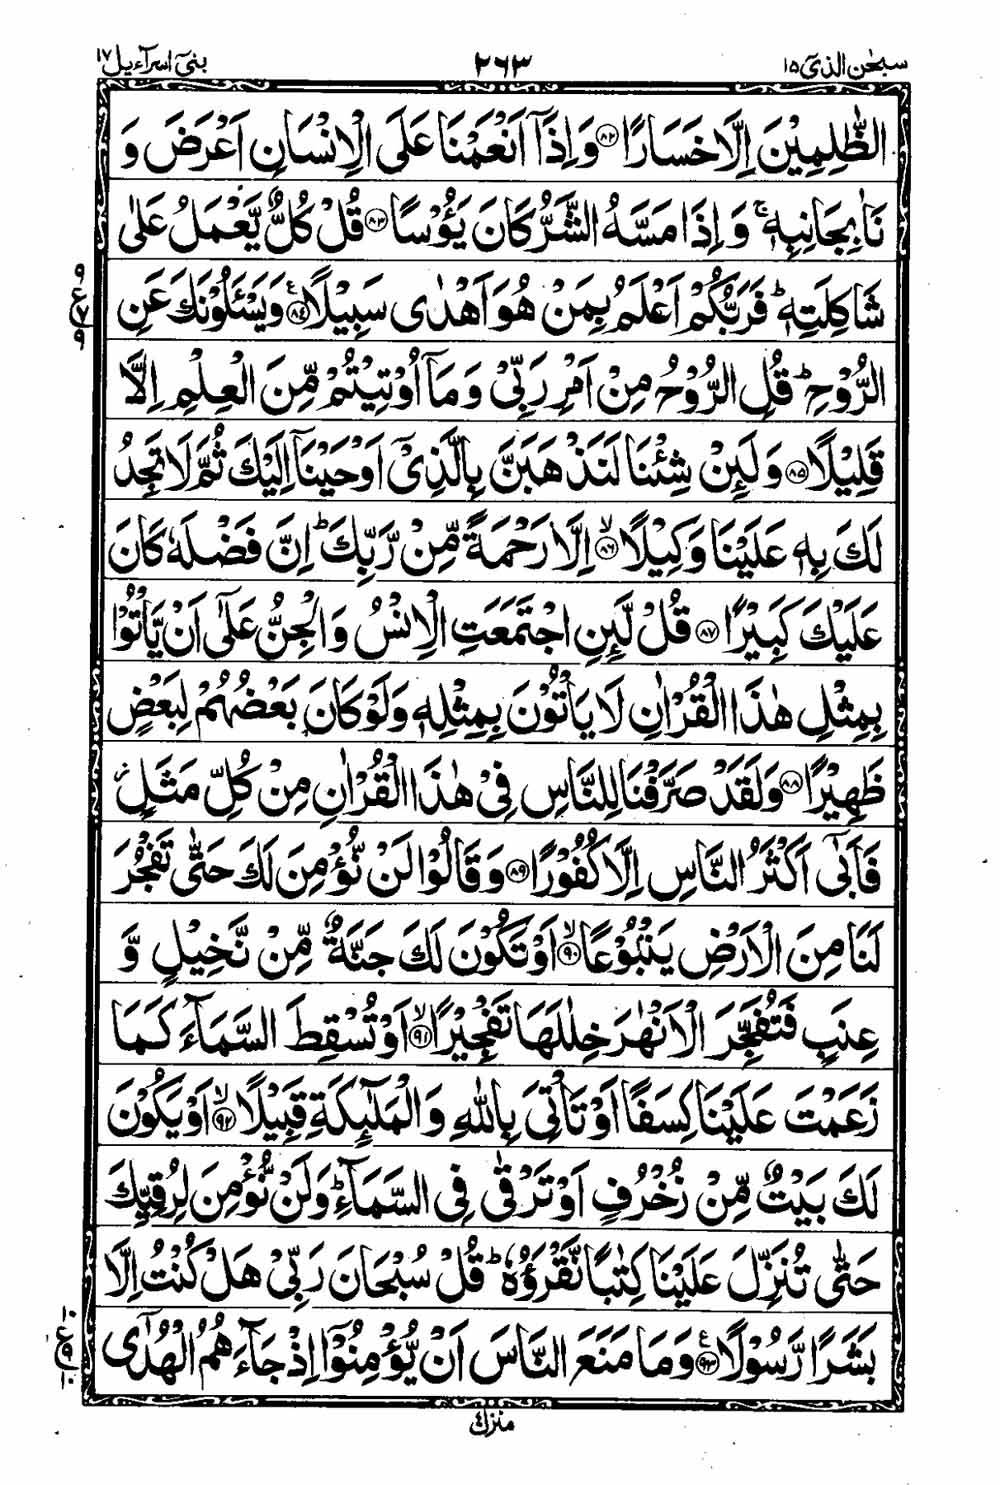 سبحٰن الذی ١٥
٢٦٣
بنی اسرآءیل ١٧
الظّٰلِمِیْنَ اِلَّا خَسَارًا ﴿٨٢﴾ وَ اِذَاۤ اَنْعَمْنَا عَلَی الْاِنْسَانِ اَعْرَضَ وَ
نَاٰ بِجَانِبِهٖ ۚ وَ اِذَا مَسَّهُ الشَّرُّ كَانَ یَـُٔوْسًا ﴿٨٣﴾ قُلْ كُلٌّ یَّعْمَلُ عَلٰی
شَاكِلَتِهٖ ؕ فَرَبُّكُمْ اَعْلَمُ بِمَنْ هُوَ اَهْدٰی سَبِیْلًا ﴿٨٤﴾ ع وَ یَسْـَٔلُوْنَكَ عَنِ
الرُّوْحِ ؕ قُلِ الرُّوْحُ مِنْ اَمْرِ رَبِّیْ وَ مَاۤ اُوْتِیْتُمْ مِّنَ الْعِلْمِ اِلَّا
قَلِیْلًا ﴿٨٥﴾ وَ لَئِنْ شِئْنَا لَنَذْهَبَنَّ بِالَّذِیْۤ اَوْحَیْنَاۤ اِلَیْكَ ثُمَّ لَا تَجِدُ
لَكَ بِهٖ عَلَیْنَا وَكِیْلًا ﴿٨٦﴾ ۙ اِلَّا رَحْمَةً مِّنْ رَّبِّكَ ؕ اِنَّ فَضْلَهٗ كَانَ
عَلَیْكَ كَبِیْرًا ﴿٨٧﴾ قُلْ لَّئِنِ اجْتَمَعَتِ الْاِنْسُ وَ الْجِنُّ عَلٰۤی اَنْ یَّاْتُوْا
بِمِثْلِ هٰذَا الْقُرْاٰنِ لَا یَاْتُوْنَ بِمِثْلِهٖ وَ لَوْ كَانَ بَعْضُهُمْ لِبَعْضٍ
ظَهِیْرًا ﴿٨٨﴾ وَ لَقَدْ صَرَّفْنَا لِلنَّاسِ فِیْ هٰذَا الْقُرْاٰنِ مِنْ كُلِّ مَثَلٍ ؗ
فَاَبٰۤی اَكْثَرُ النَّاسِ اِلَّا كُفُوْرًا ﴿٨٩﴾ وَ قَالُوْا لَنْ نُّؤْمِنَ لَكَ حَتّٰی تَفْجُرَ
لَنَا مِنَ الْاَرْضِ یَنْۢبُوْعًا ﴿٩٠﴾ ۙ اَوْ تَكُوْنَ لَكَ جَنَّةٌ مِّنْ نَّخِیْلٍ وَّ
عِنَبٍ فَتُفَجِّرَ الْاَنْهٰرَ خِلٰلَهَا تَفْجِیْرًا ﴿٩١﴾ ۙ اَوْ تُسْقِطَ السَّمَآءَ كَمَا
زَعَمْتَ عَلَیْنَا كِسَفًا اَوْ تَاْتِیَ بِاللّٰهِ وَ الْمَلٰٓئِكَةِ قَبِیْلًا ﴿٩٢﴾ ۙ اَوْ یَكُوْنَ
لَكَ بَیْتٌ مِّنْ زُخْرُفٍ اَوْ تَرْقٰی فِی السَّمَآءِ ؕ وَ لَنْ نُّؤْمِنَ لِرُقِیِّكَ
حَتّٰی تُنَزِّلَ عَلَیْنَا كِتٰبًا نَّقْرَؤُهٗ ؕ قُلْ سُبْحَانَ رَبِّیْ هَلْ كُنْتُ اِلَّا
بَشَرًا رَّسُوْلًا ﴿٩٣﴾ ع وَ مَا مَنَعَ النَّاسَ اَنْ یُّؤْمِنُوْۤا اِذْ جَآءَهُمُ الْهُدٰۤی
٩
ع
٧
٩
١٠
ع
٩
١٠
منزل ٤